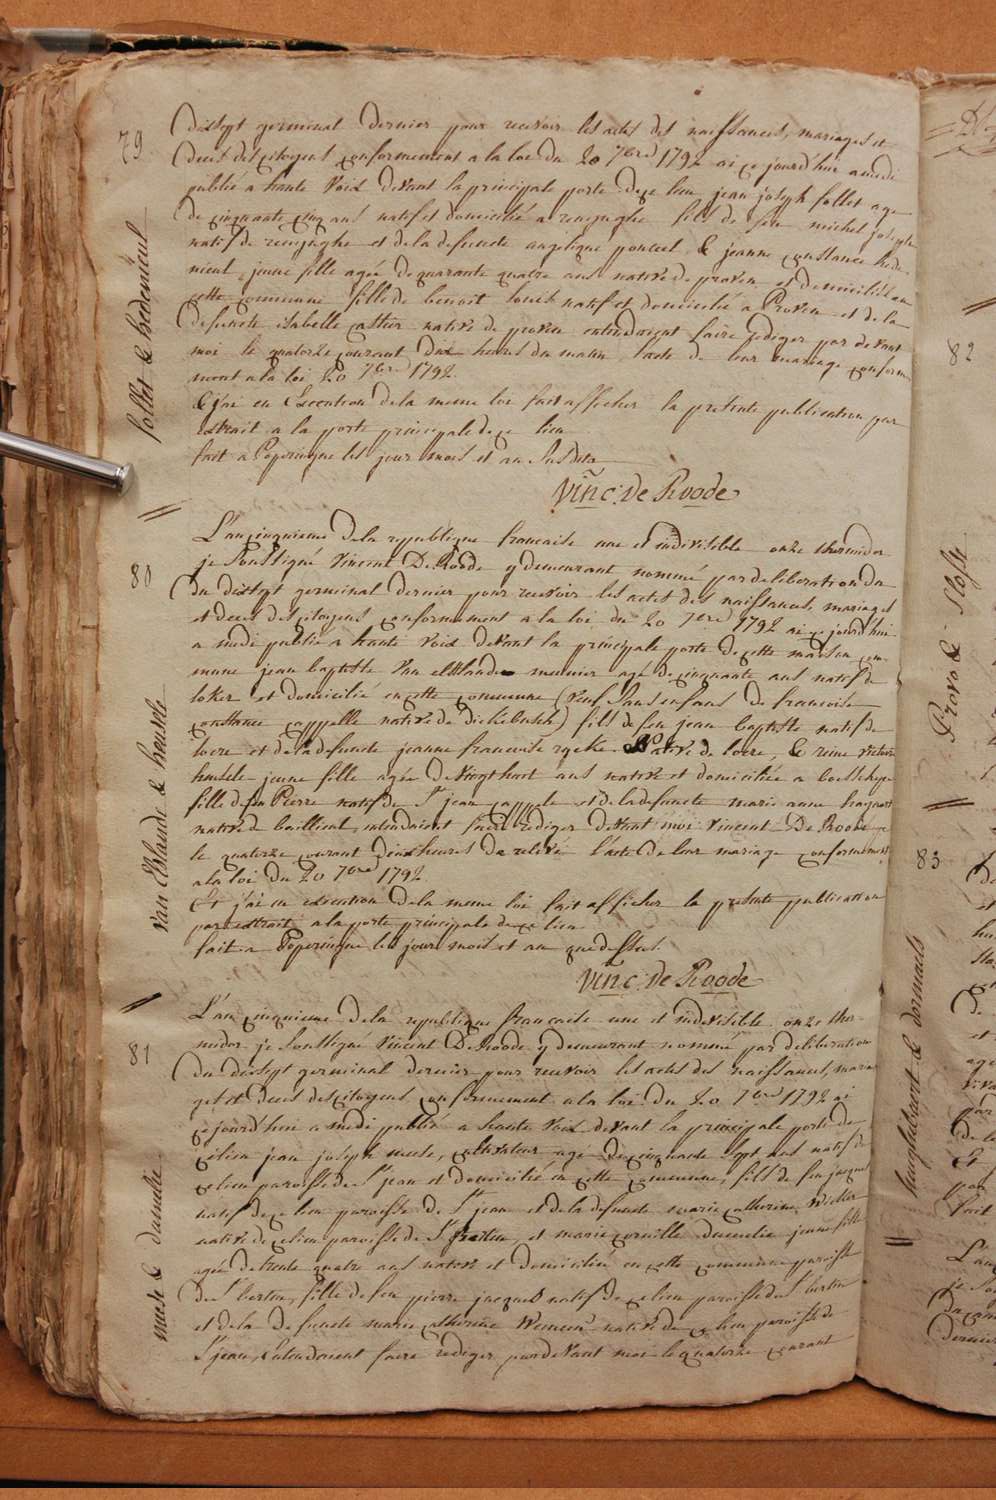 79
follet & hedenieul
dixsept germinal dernier pour recevoir les actes des naissances, mariages et
deces des citoyens conformement a la loi du 20 7bre 1792 ai ce jourd'hui a midi
publié a haute voix devant la principale porte de ce lieu jean joseph follet age
de cinquante cinq ans natif et domicilié a reninghe fils de feu michel joseph
natif de reninghe et de la defuncte angelique pouceel & jeanne constance hede-
nieul, jeune fille agée de quarante quatre ans native de proven et domiciliée en
cette commune fille de benoit louis natif et domicilié a Proven et de la
defuncte isabelle native de proven entendoient faire rediger par devant
moi le quatorze courant dix heures du matin l'acte de leur mariage conforme-
ment a la loi 20 7bre 1792.
& j'ai en Execution de la meme loi fait afficher la presente publication par
extrait a la porte principale de ce lieu
fait a Poperingue les jour mois et an susdits
Vinc: de Roode
80
van Elslande & heusele
L'an cinquieme de la republique francaise une et indivisible onze thermidor
je soussigné vincent De Roode y demeurant nommé par deliberation du
du dixsept germinal dernier pour recevoir les actes des naissances, mariages
et deces des citoyens conformement a la loi du 20 7bre 1792 ai ce jourd'hui
a midi publié a haute voix devant la principale porte de cette maison com-
mune jean baptiste van elslande meunier agé de cinquante ans natif de
loker et domicilié en cette commune (veuf sans enfans de francoise
constance cappelle native de dickebusch) fils de feu jean baptiste natif de
locre et de la defuncte jeanne francoise native de locre, & reine victoire
heusele jeune fille agée de vingt huit ans native et domiciliée a boesschepe
fille de feu Pierre natif de St jean cappele et de la defuncte marie anne
native de bailleul, entendoient faire rediger devant moi vincent De Roode
le quatorze courant dix heures de relevée l'acte de leur mariage conformement
a la loi du 20 7bre 1792
Et j'ai en execution de la meme loi fait afficher la presente publication
par extrait a la porte principale de ce lieu
fait a Poperingue les jour mois et an que dessus.
Vinc: de Roode
81
meese & damelie
L'an cinquieme de la republique francaise une et indivisible onze ther-
midor je soussigné vincent De Roode y demeurant nommé par deliberation
du dixsept germinal dernier pour recevoir les actes des naissances, maria-
ges et deces des citoyens conformement a la loi du 20 7bre 1792 ai
ce jourd'hui a midi publié a haute voix devant la principale porte de
ce lieu jean joseph meese, cultivateur agé de cinquante sept ans natif de
ce lieu paroisse de St jean et domicilié en cette commune, fils de feu jacques
natif de ce lieu paroisse de St jean et de la defuncte marie catherine
native de ce lieu paroisse de St bertin, et marie jeune fille
agée de trente quatre ans native et domiciliée en cette commune paroisse
de St bertin, fille de feu pierre jacques natif de ce lieu paroisse de St bertin
et de la defuncte marie catherine native de ce lieu paroisse de
St jean, entendoient faire rediger par devant moi le quatorze courant
82
Provo & Slosse
83
hughebaert & dormaels